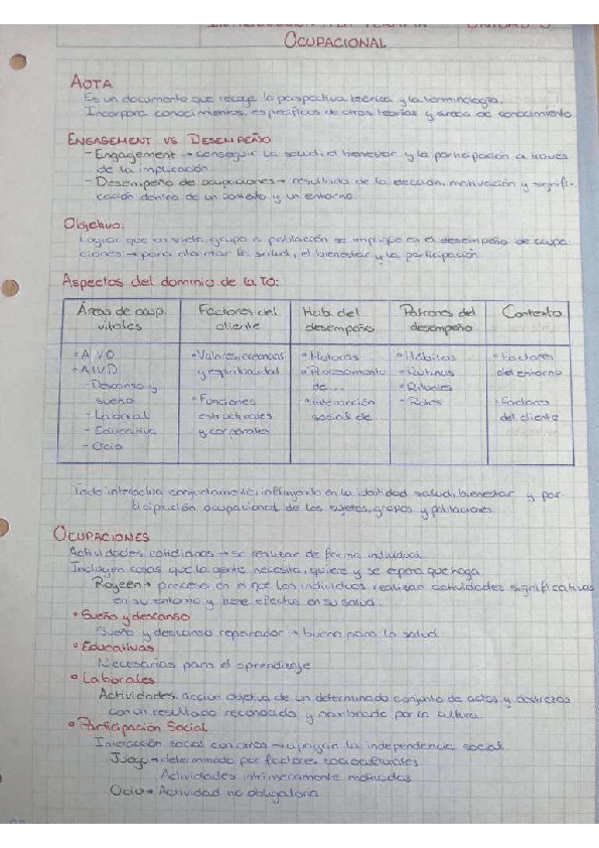 OCUPACIONAL
AOTA
Es un documento que recoge la perspectiva teórica y la terminología.
Incorpora conocimientos específicos de otras teorías y áreas de conocimiento
ENGAGEMENT VS DESEMPEÑO
- Engagement → conseguir la salud, el bienestar y la participación a través
de la implicación
- Desempeño de ocupaciones → resultado de la elección, motivación y signifi-
cación dentro de un contexto y un entorno
Objetivo:
Lograr que un sujeto, grupo o población se implique en el desempeño de ocupa-
ciones → para alcanzar la salud, el bienestar y la participación.
Aspectos del dominio de la TO:
Áreas de ocup. vitales
Factores del cliente
Hab. del desempeño
Patrones del desempeño
Contexto
• AVD
• AIVD
- Descanso y sueño
- Laboral
- Educativa
- Ocio
• Valores, creencias y espiritualidad
• Funciones estructurales y corporales
• Motoras
• Procesamiento de ...
• Interacción social de
• Hábitos
• Rutinas
• Rituales
• Roles
• Factores del entorno
• Factores del cliente
Todo interactúa conjuntamente, influyendo en la identidad, salud, bienestar y par-
ticipación ocupacional de los sujetos, grupos y poblaciones
OCUPACIONES
Actividades cotidianas → se realizan de forma individual.
Incluyen cosas que la gente necesita, quiere y se espera que haga
proceso en el que los individuos realizan actividades significativas
en su entorno y tiene efectos en su salud.
• Sueño y descanso
Sueño y descanso reparador → bueno para la salud
• Educativas
Necesarias para el aprendizaje
• Laborales
Actividades, acción objetiva de un determinado conjunto de actos y destrezas
con un resultado reconocido y nombrado por la cultura.
• Participación Social
Interacción social con otros → apoyan la independencia social.
Juego → determinado por factores socioculturales
Actividades intrínsecamente motivadas
Ocio → Actividad no obligatoria